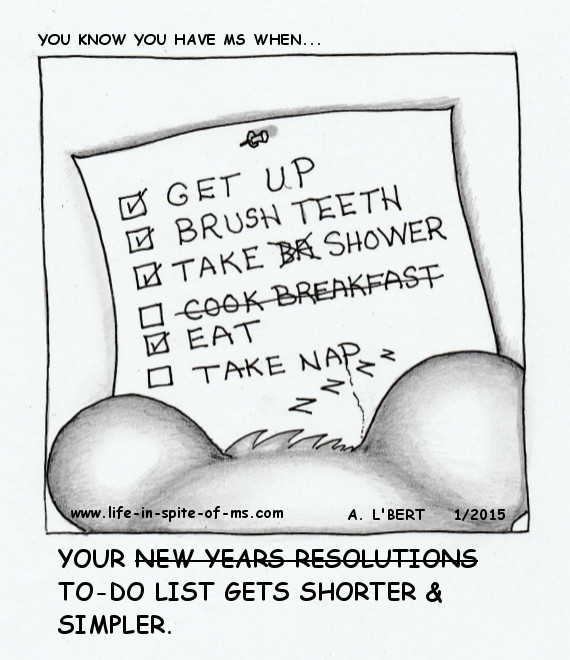 YOU KNOW YOU HAVE MS WHEN...
GET UP
BRUSH TEETH
TAKE BA SHOWER
COOK BREAKFAST
EAT
TAKE NAP
Z Z Z Z
www.life-in-spite-of-ms.com A. L'BERT 1/2015
YOUR NEW YEARS RESOLUTIONS
TO-DO LIST GETS SHORTER &
SIMPLER.